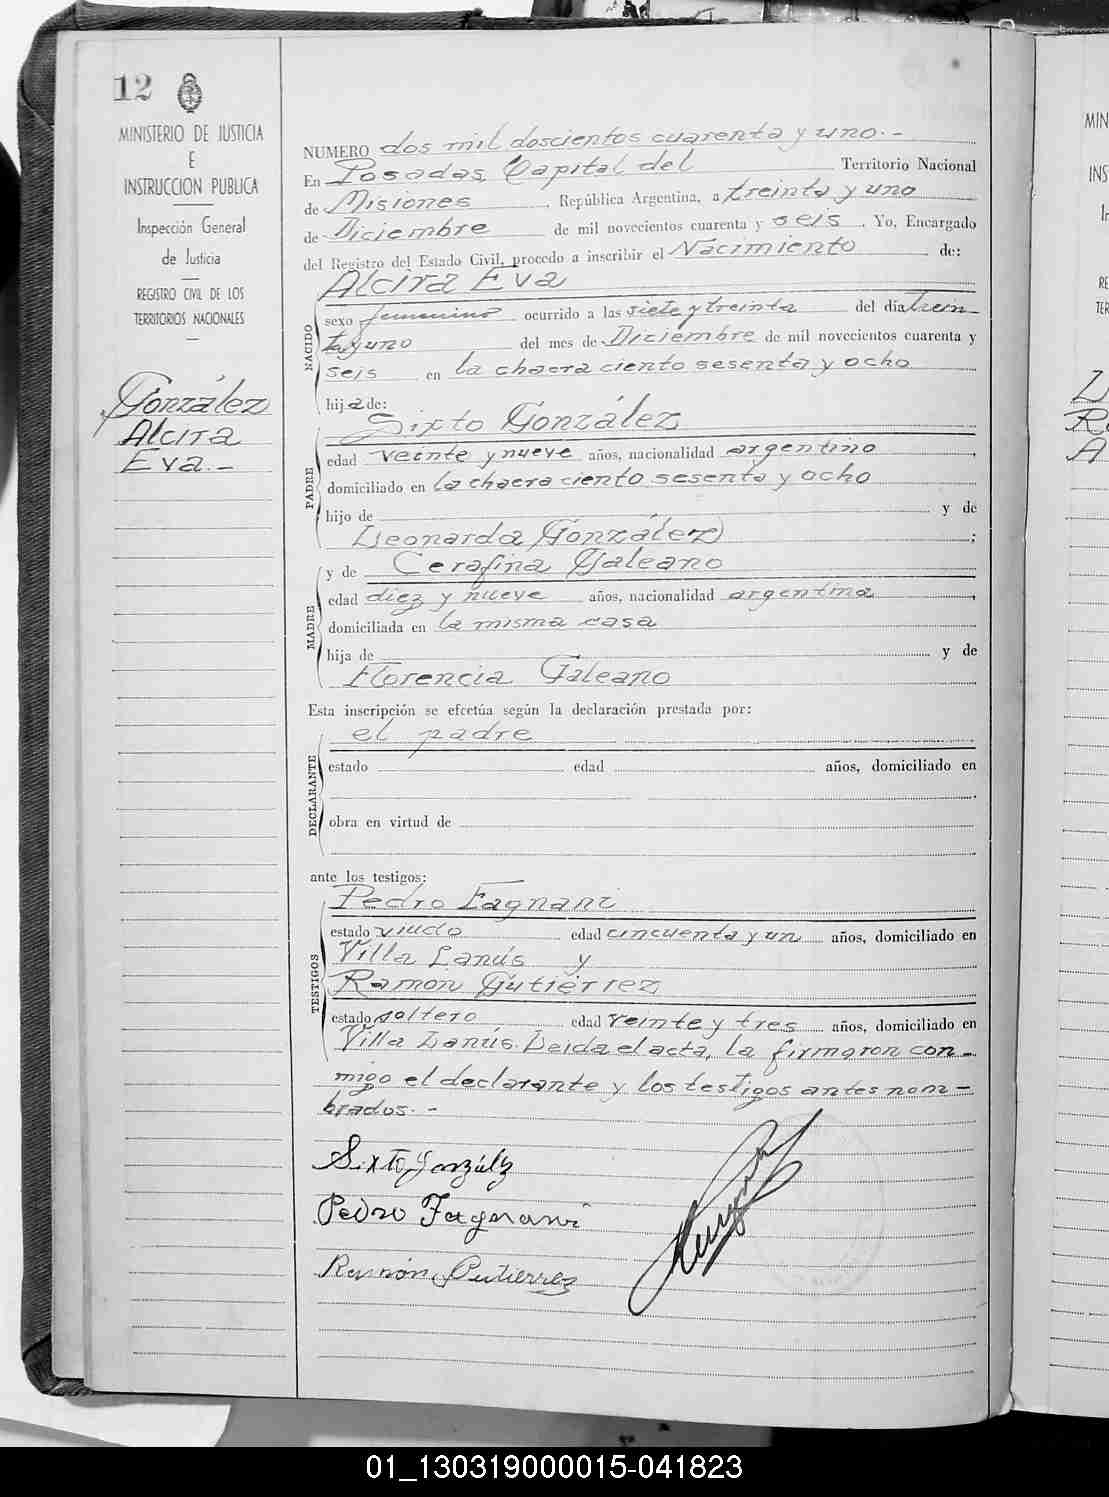 12
MINISTERIO DE JUSTICIA
E
INSTRUCCION PUBLICA
Inspección General
de Justicia
REGISTRO CIVIL DE LOS
TERRITORIOS NACIONALES
González
Alcira
Eva.-
NUMERO dos mil doscientos cuarenta y uno.-
En Posadas, Capital del Territorio Nacional
de Misiones, República Argentina, a treinta y uno
de Diciembre de mil novecientos cuarenta y seis. Yo, Encargado
del Registro del Estado Civil, procedo a inscribir el Nacimiento de:
Alcira Eva
NACIDO
sexo femenino ocurrido a las siete y treinta del día trein-
ta y uno del mes de Diciembre de mil novecientos cuarenta y
seis en la chacra ciento sesenta y ocho
hija de:
Sixto González
PADRE
edad veinte y nueve años, nacionalidad argentino,
domiciliado en la chacra ciento sesenta y ocho
hijo de y de
Leonarda González;
y de Cerafina Galeano
MADRE
edad diez y nueve años, nacionalidad argentina,
domiciliada en la misma casa
hija de y de
Florencia Galeano
Esta inscripción se efectúa según la declaración prestada por:
el padre
DECLARANTE
estado edad años, domiciliado en
obra en virtud de
ante los testigos:
Pedro Fagnani
TESTIGOS
estado viudo edad cincuenta y un años, domiciliado en
Villa Lanús y
Ramón Gutiérrez
estado soltero edad veinte y tres años, domiciliado en
Villa Lanús. Leida el acta, la firmaron con-
migo el declarante y los testigos antes nom-
brados.-
Sixto González
Pedro Fagnani
Ramón Gutierrez
MIN
INS
RE
TER
01_130319000015-041823